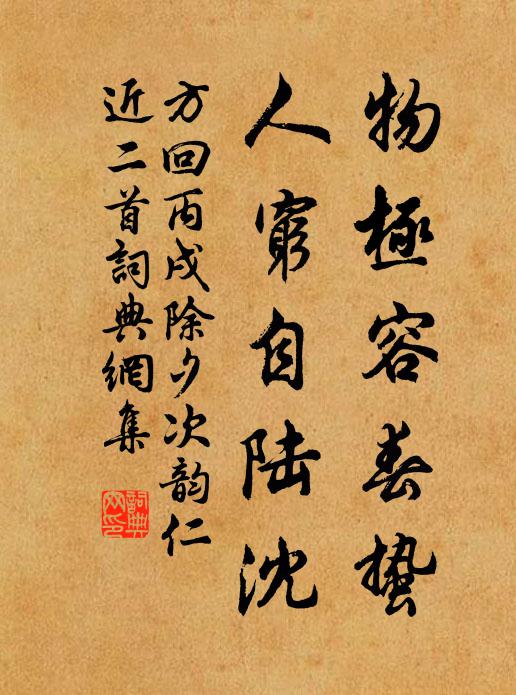 物極容春蟄
人窮自陆沈
方回丙戌除夕次韵仁
近二首詞典網集
詞典網印